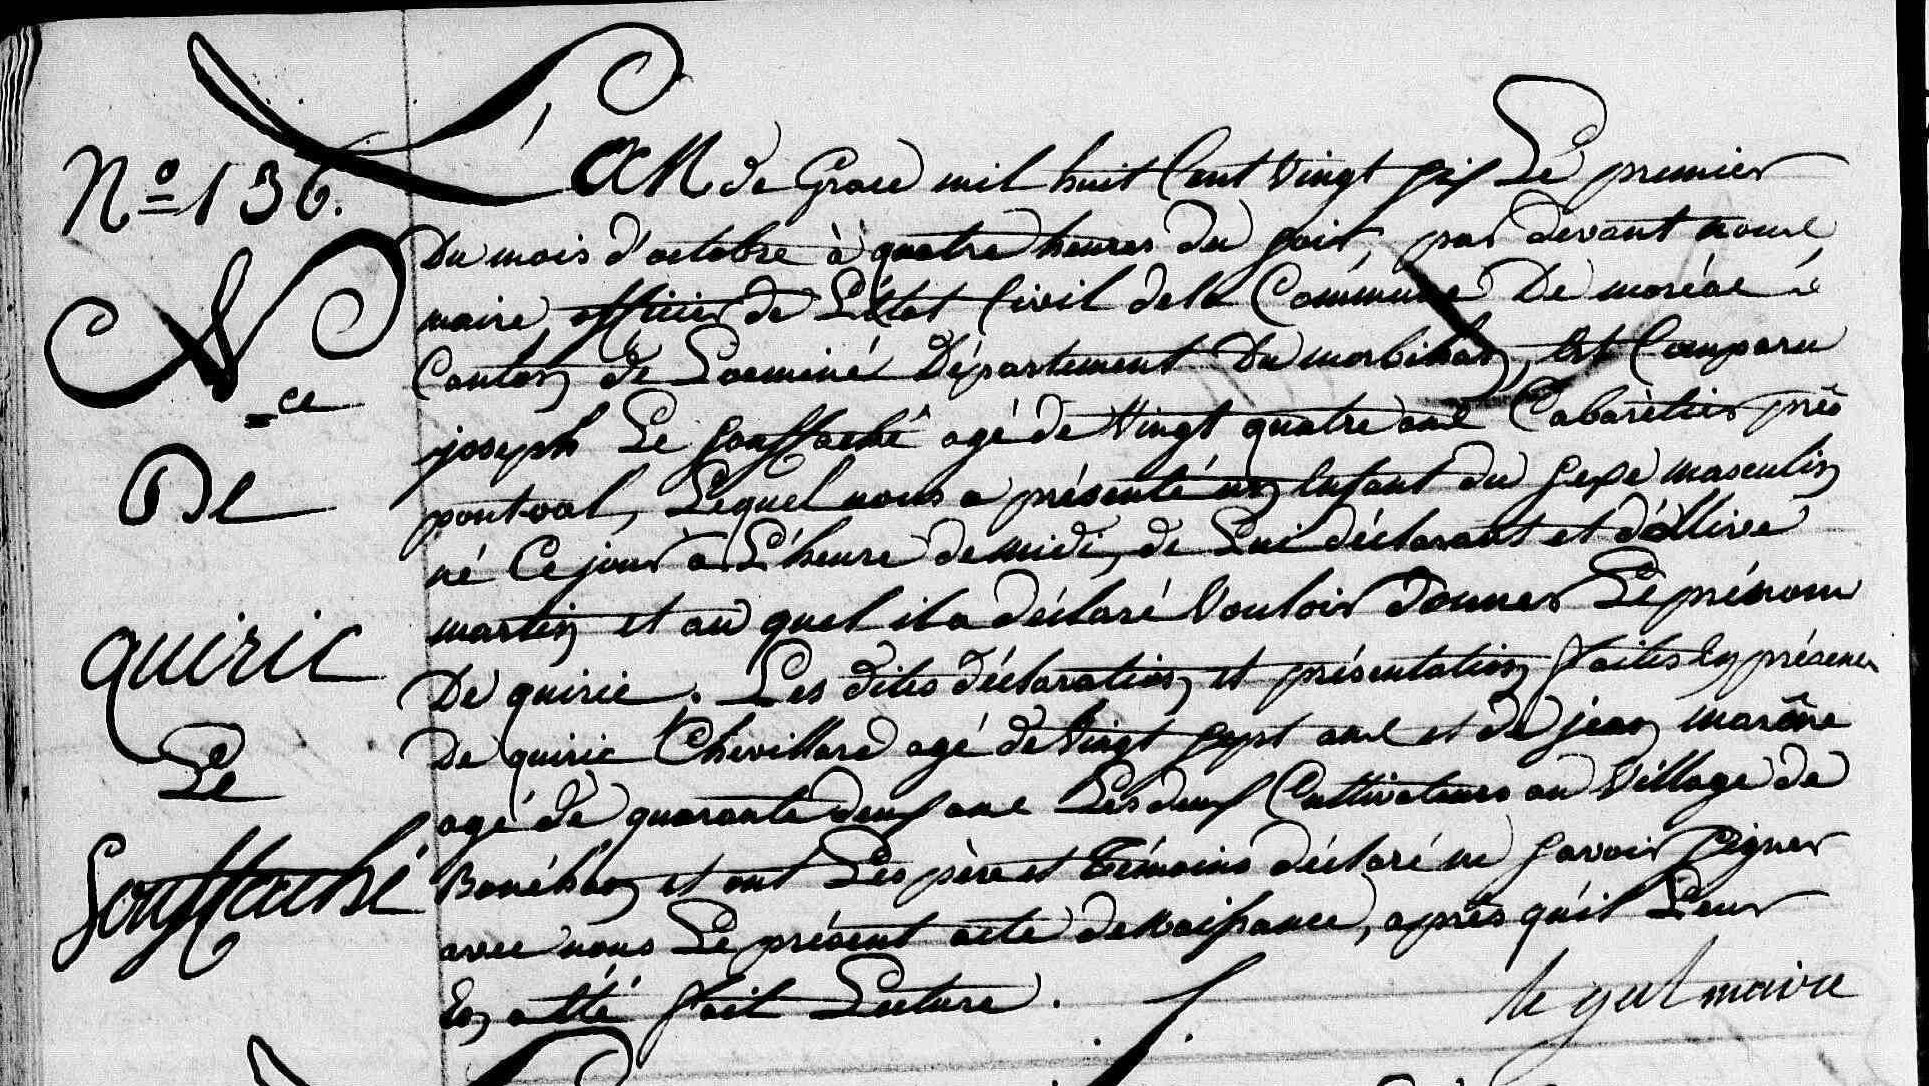 N.o 136.
N.ce
De
quiric
Le
Gouffaché
L'an de Grace mil huit Cent Vingt six Le premier
Du mois d'octobre à quatre heures du soir, par devant nous
maire officier de L'état Civil de la Commune De moréac
Canton de Locminé Département Du morbihan, est Comparu
joseph Le Gouffaché agé de Vingt quatre ans Cabarétier près
pontval, Lequel nous a présenté un Enfant du sexe masculin
né Ce jour à L'heure de midi, de Lui déclarant et d'ollive
martin et au quel il a déclaré Vouloir Donner Le prénom
De quiric. Les dites déclaration et présentation faites En présence
De quiric Chevillard agé de Vingt sept ans et de jean
agé de quarante deux ans Les deux Cultivateurs au Village de
et ont Les père et Témoins déclaré ne savoir signer
avec nous Le présent acte de Naissance, après qu'il Leur
En a été fait Lecture.
le gal maire